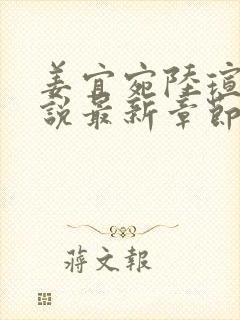 姜宜宛陸瑄
說最新章節
蔣文報